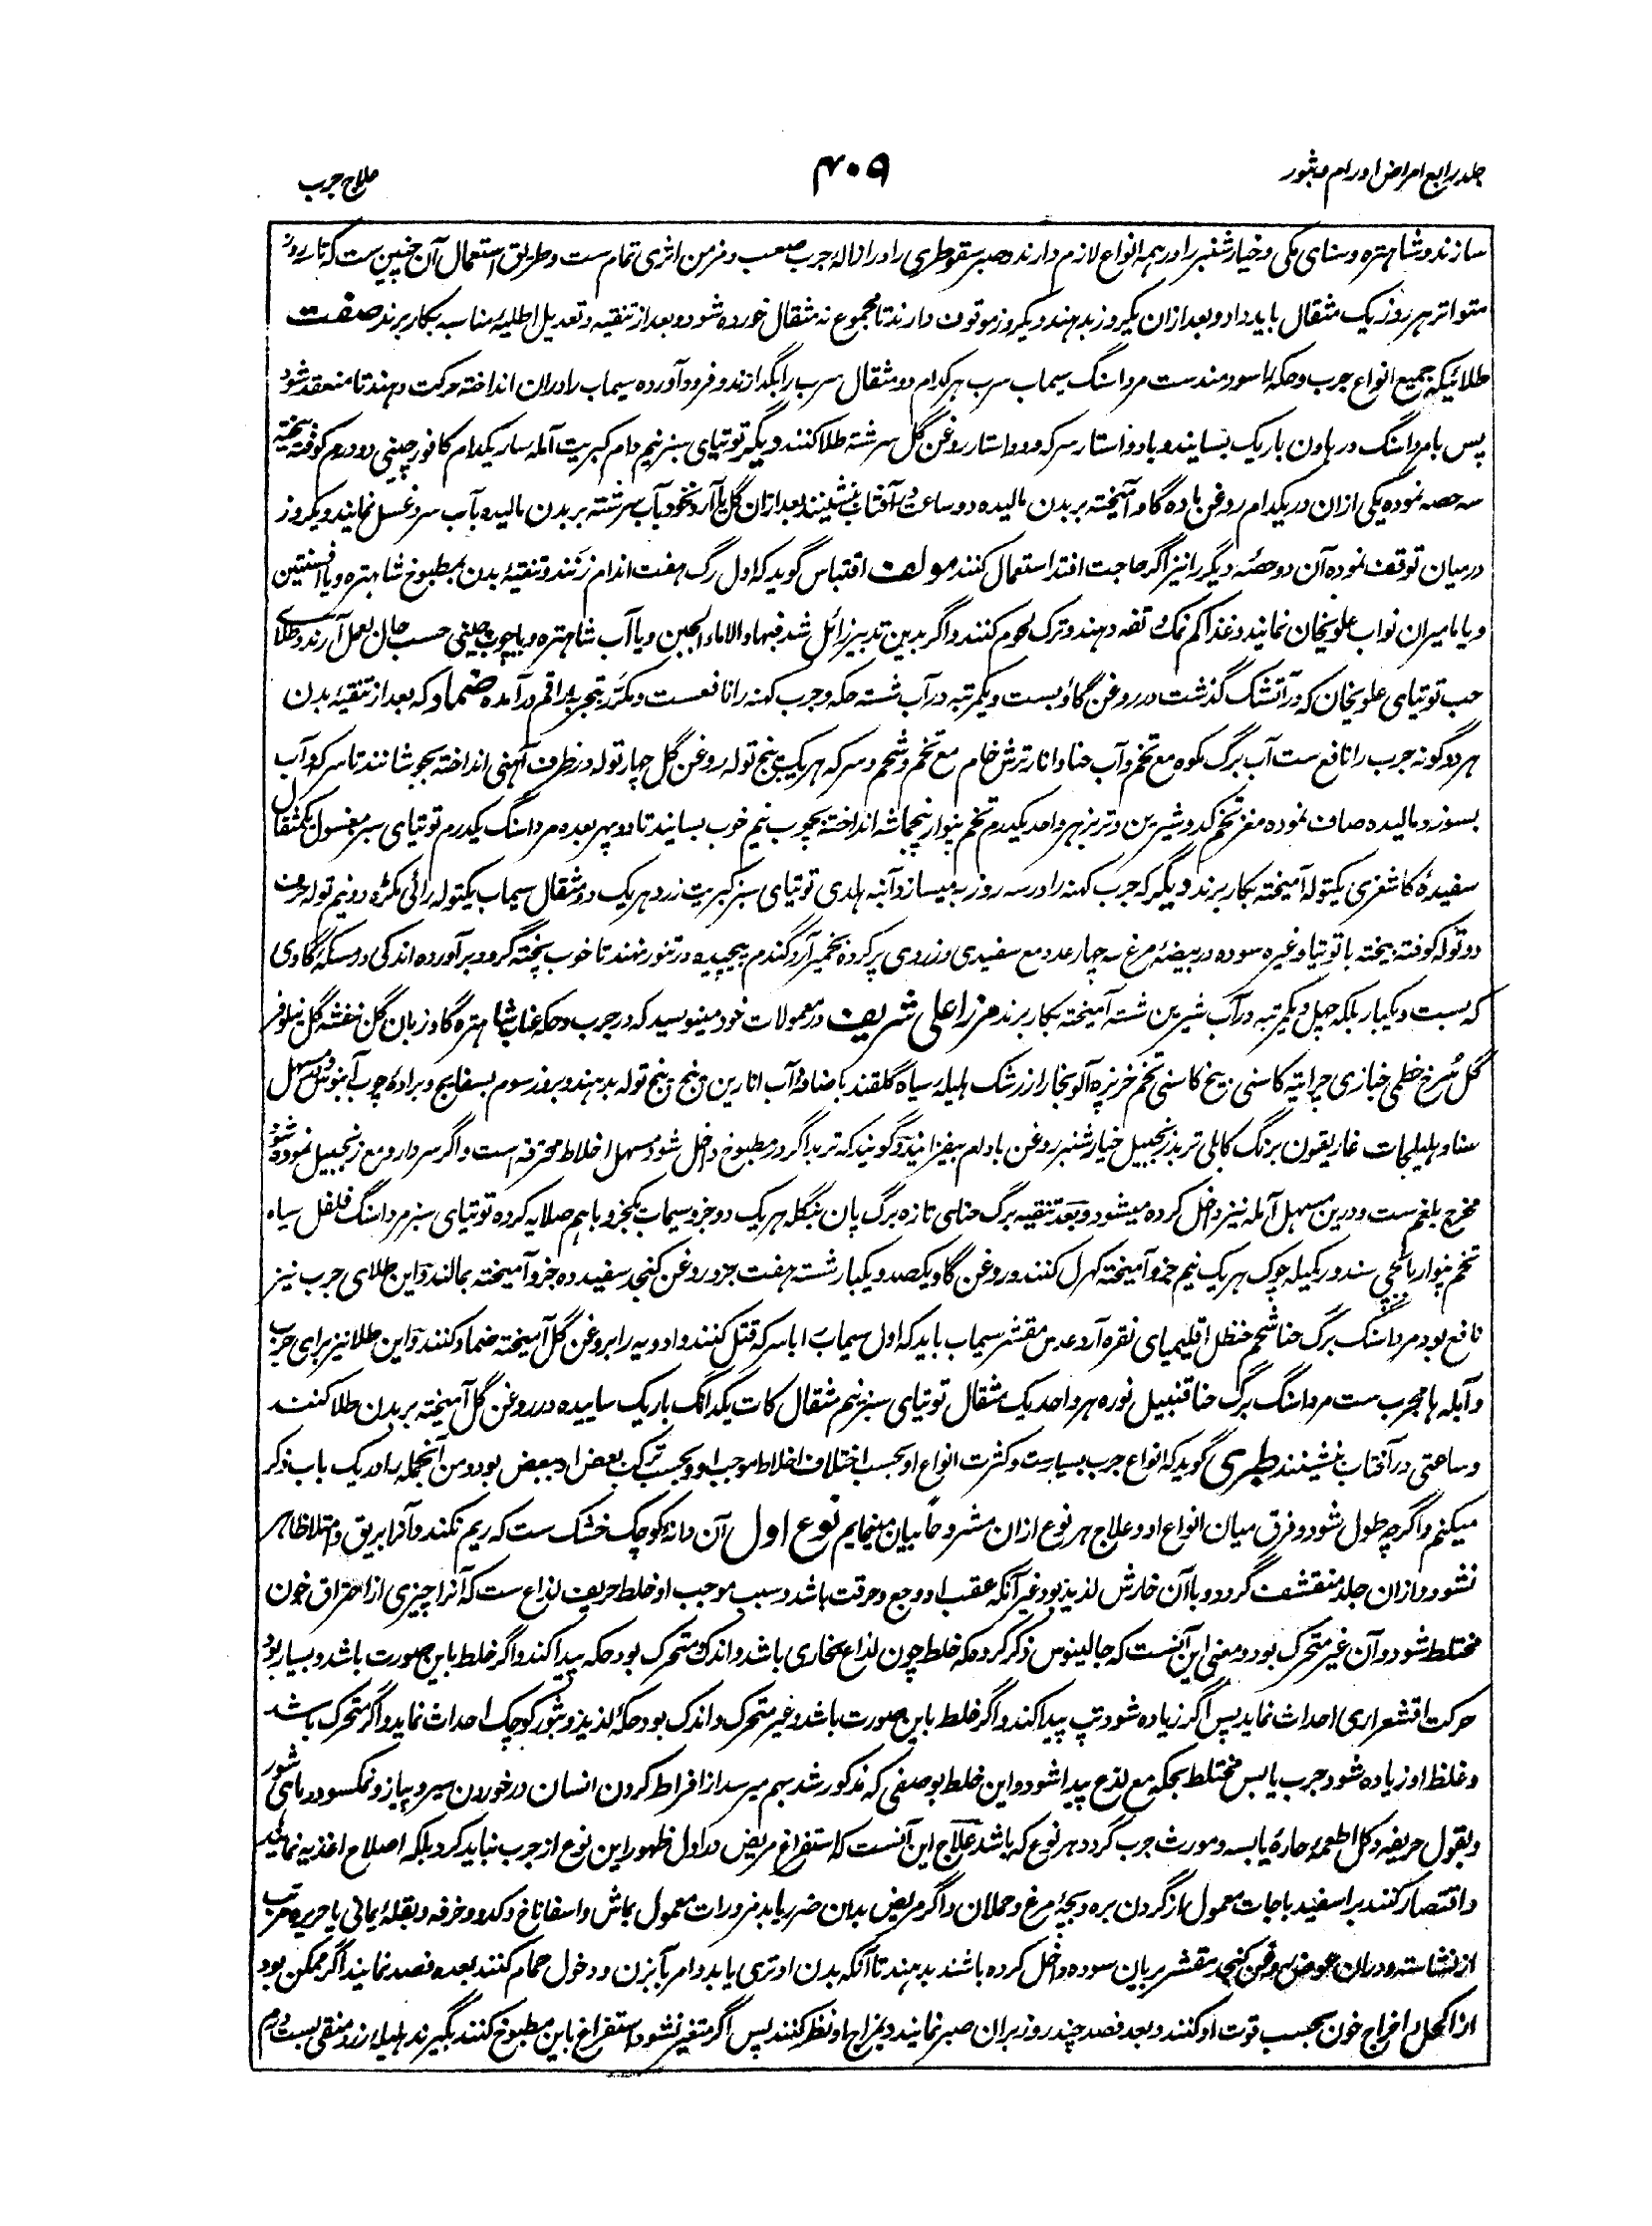 جلد رابع امراض اورام و بثور
۴۰۹
علاج جرب
سازند و شاهتره و سنای مکی و خیارشنبر را در همه انواع لازم دارند و صبر سقوطری را در ازالهٔ جرب صعب و مزمن اثری تمام ست و طریق استعمال آن چنین ست که تا سه روز
متواتر هر روز یک مثقال باید داد و بعد ازان یکروز بدهند و یکروز موقوف دارند تا مجموع نه مثقال خورده شود و بعد از تنقیه و تعدیل اطلیهٔ مناسبه بکار برند صفت
طلائیکه جمیع انواع جرب و حکه را سودمندست مرداسنگ سیماب سرب هرکدام دو مثقال سرب را بگدازند و فرود آورده سیماب را دران انداخته حرکت دهند تا منعقد شود
پس با مرداسنگ در هاون باریک بسایند و با دو استار سرکه و دو استار روغن گل سرشته طلا کنند دیگر توتیای سبز نیم دام کبریت آمله سار یکدام کافور چینی دو درم کوفته بیخته
سه حصه نموده یکی ازان در یکدام روغن ماده گاو آمیخته بر بدن مالیده دو ساعت در آفتاب بنشینند بعد ازان گل یا آرد نخود بآب سرشته بر بدن مالیده بآب سرد غسل نمایند و یکروز
درمیان توقف نموده آن دو حصهٔ دیگر را نیز اگر حاجت افتد استعمال کنند مولف اقتباس گوید که اول رگ هفت اندام زنند و تنقیهٔ بدن بمطبوخ شاهتره و یا افسنتین
و یا مامیران نواب علویخان نمایند و غذا کم نمک و تفه دهند و ترک لحوم کنند و اگر بدین تدبیر زائل شد فبها والا ماء الجبن و یا آب شاهتره و یا چوب چینی حسب حال بعمل آرند و طلای
حب توتیای علویخان که در آتشک گذشت در روغن گاو بست و یکمرتبه در آب شسته حکه و جرب کهنه را نافعست و مکرر بتجربهٔ راقم درآمده ضماد که بعد از تنقیهٔ بدن
هر دو گونه جرب را نافع ست آب برگ مکوه مع تخم و آب حنا و انار ترش خام مع تخم و شحم و سرکه هریک پنج توله روغن گل چهار توله در ظرف آهنی انداخته بجوشانند تا سرکه و آب
بسوزد و مالیده صاف نموده مغز تخم کدو شیرین و تربز هر واحد یکدرم تخم پنوار پنجماشه انداخته بچوب نیم خوب بسایند تا دو پهر بعده مرداسنگ یکدرم توتیای سبز مغسول یکمثقال
سفیدهٔ کاشغری یکتوله آمیخته بکار برند دیگر که جرب کهنه را در سه روز به میسازد آنبه هلدی توتیای سبز کبریت زرد هریک دو مثقال سیماب یکتوله رائی مکڑه دو نیم توله حرف
دو توله کوفته بیخته با توتیا وغیره سوده در بیضهٔ مرغ سه چار عدد مع سفیدی و زردی پر کرده بخمیر آرد گندم پیچیده در تنور نهند تا خوب پخته گردد و برآورده اندکی در مسکهٔ گاوی
که بست و یکبار بلکه چهل و یکمرتبه در آب شیرین شسته آمیخته بکار برند مرزا علی شریف در معمولات خود مینویسد که در جرب و حکه عناب شاهتره گاوزبان گل بنفشه گل نیلوفر
گل سرخ خطمی خبازی چرایته کاسنی بیخ کاسنی تخم خرپزه آلوبخارا زرشک هلیله سیاه گلقند باضافهٔ آب انارین پنج پنج توله بدهند و بروز سوم بسفایج و برادهٔ چوب آبنوس و مسهل
سنا و هلیلجات غاریقون برنگ کابلی تربد زنجبیل خیارشنبر روغن بادام بیفزانید و گویند که تربد اگر در مطبوخ داخل شود مسهل اخلاط محترقه است و اگر سردارو مع زنجبیل نموده شود
مخرج بلغم ست و درین مسهل آمله نیز داخل کرده میشود و بعد تنقیه برگ حنای تازه برگ پان بنگله هریک دو جزو سیماب یکجزو باهم صلایه کرده توتیای سبز مرداسنگ فلفل سیاه
تخم پنوار بابچی سندور یکیله چوک هریک نیم جزو آمیخته کهرل کنند و روغن گاو یکصد و یکبار شسته هفت جزو روغن کنجد سفید ده جزو آمیخته بمالند و این طلای جرب نیز
نافع بود مرداسنگ برگ حنا شحم حنظل اقلیمیای نقره آرد عدس مقشر سیماب باید که اول سیماب را با سرکه قتل کنند و ادویه را بروغن گل آمیخته ضماد کنند و این طلا نیز برای جرب
و آبله ها مجرب ست مرداسنگ برگ حنا قنبیل نوره هر واحد یک مثقال توتیای سبز نیم مثقال کات یکدانگ باریک ساییده در روغن گل آمیخته بر بدن طلا کنند
و ساعتی در آفتاب بنشینند طبری گوید که انواع جرب بسیارست و کثرت انواع او بحسب اختلاف اخلاط موجب او و بحسب ترکیب بعض او ببعض بود و من آنجمله را در یک باب ذکر
میکنم و اگرچه طول شود و فرق میان انواع او و علاج هر نوع ازان مشروحاً بیان مینمایم نوع اول آن دانهٔ کوچک خشک ست که ریم نکند و آنرا بریق و امتلا ظاهر
نشود و ازان جلد منقشف گردد و با آن خارش لذیذ بود غیر آنکه عقب او وجع و حرقت باشد و سبب موجب او خلط حریف لذاع ست که آنرا چیزی از احتراق خون
مختلط شود و آن غیر متحرک بود و معنی این آنست که جالینوس ذکر کرده که خلط چون لذاع بخاری باشد و اندک و متحرک بود حکه پیدا کند و اگر خلط باین صورت باشد و بسیار بود
حرکت اقشعراری احداث نماید پس اگر زیاده شود تپ پیدا کند و اگر خلط باین صورت باشد و غیر متحرک و اندک بود حکهٔ لذیذ و بثور کوچک احداث نماید و اگر متحرک باشد
و غلظ او زیاده شود جرب یابس مختلط بحکه مع لذع پیدا شود و این خلط بوصفی که مذکور شد بهم میرسد از افراط کردن انسان در خوردن سیر و پیاز و نمکسود و ماهی شور
و بقول حریفه و کل اطعمهٔ حارهٔ یابسه و مورث جرب گردد هر نوع که باشد علاج این آنست که استفراغ مریض در اول ظهور این نوع از جرب نباید کرد بلکه اصلاح اغذیه نمایند
و اقتصار کنند بر اسفیدباجات معمول از گردن بره و بچهٔ مرغ و حملان و اگر مریض بدان ضرر یابد مزورات معمول بماش و اسفاناخ و کدو و خرفه و بقلهٔ یمانی یا حریره مرتب
از نشاسته و دران عوض روغن کنجد مقشر بریان سوده داخل کرده باشند بدهند تا آنکه بدن او تری یابد و امر بآبزن و دخول حمام کنند بعده فصد نمایند اگر ممکن بود
از اکحل و اخراج خون بحسب قوت او کنند و بعد فصد چند روز بران صبر نمایند و بمزاج او نظر کنند پس اگر متغیر نشود استفراغ باین مطبوخ کنند بگیرند هلیله زرد منقی بست درم